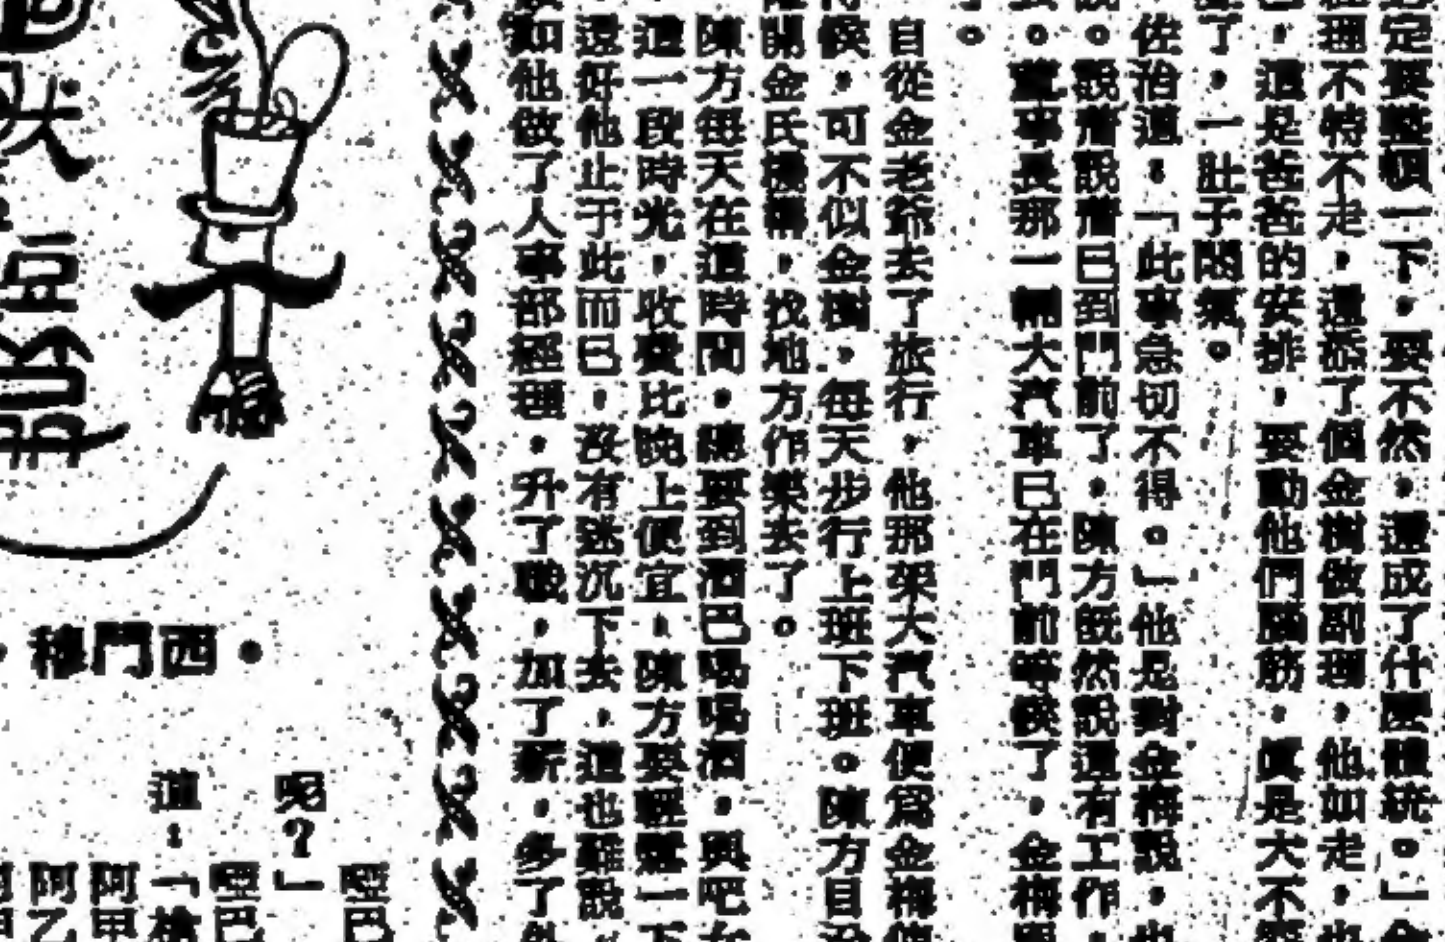 定要整頓一下，要不然，還成了什麼體統。」金
理不特不走，還添了個金樹做副理，他如走，也
，這是爸爸的安排，要動他們腦筋，真是大不
了，一肚子悶氣。
佐治道，「此事急切不得。」他是對金梅說，也
。說着說着已到門前了，陳方旣然說還有工作
。董事長那一輛大汽車已在門前等候了，金梅
。
自從金老爺去了旅行，他那架大汽車便爲金梅
候，可不似金樹，每天步行上班下班。陳方目
開金氏機構，找地方作樂去了。
陳方每天在這時間，總要到酒巴喝喝酒，與吧女
這一段時光，收費比晚上便宜，陳方要輕鬆一下
還好他止于此而已，沒有迷沉下去，這也難說
如他做了人事部經理，升了職，加了薪，多了外
•西門穆•
啞巴
呢？」
啞巴
道：「槍
阿甲
阿乙